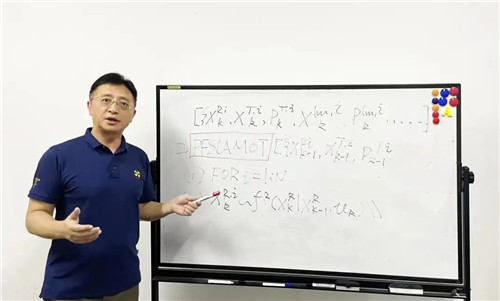 [{X_k^{R,i}, X_k^{T,i}, P_k^{T,i}, X_k^{lm,i}, P_k^{lm,i}, ....]
= PFSLAMOT [{X_{k-1}^{R,i}, X_{k-1}^{T,i}, P_{k-1}^{T,i}
(1) FOR i=1:N
X_k^{R,i} ~ f^R(X_k^R|X_{k-1}^R, u_k)